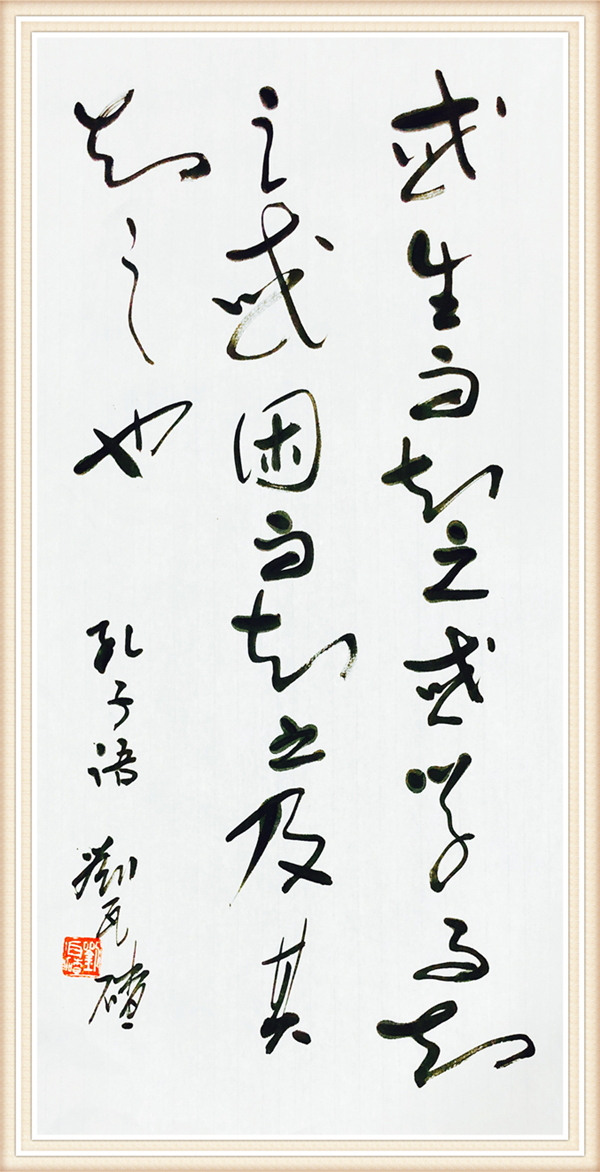 或生而知之或学而知
之或困而知之及其
知之也
孔子语